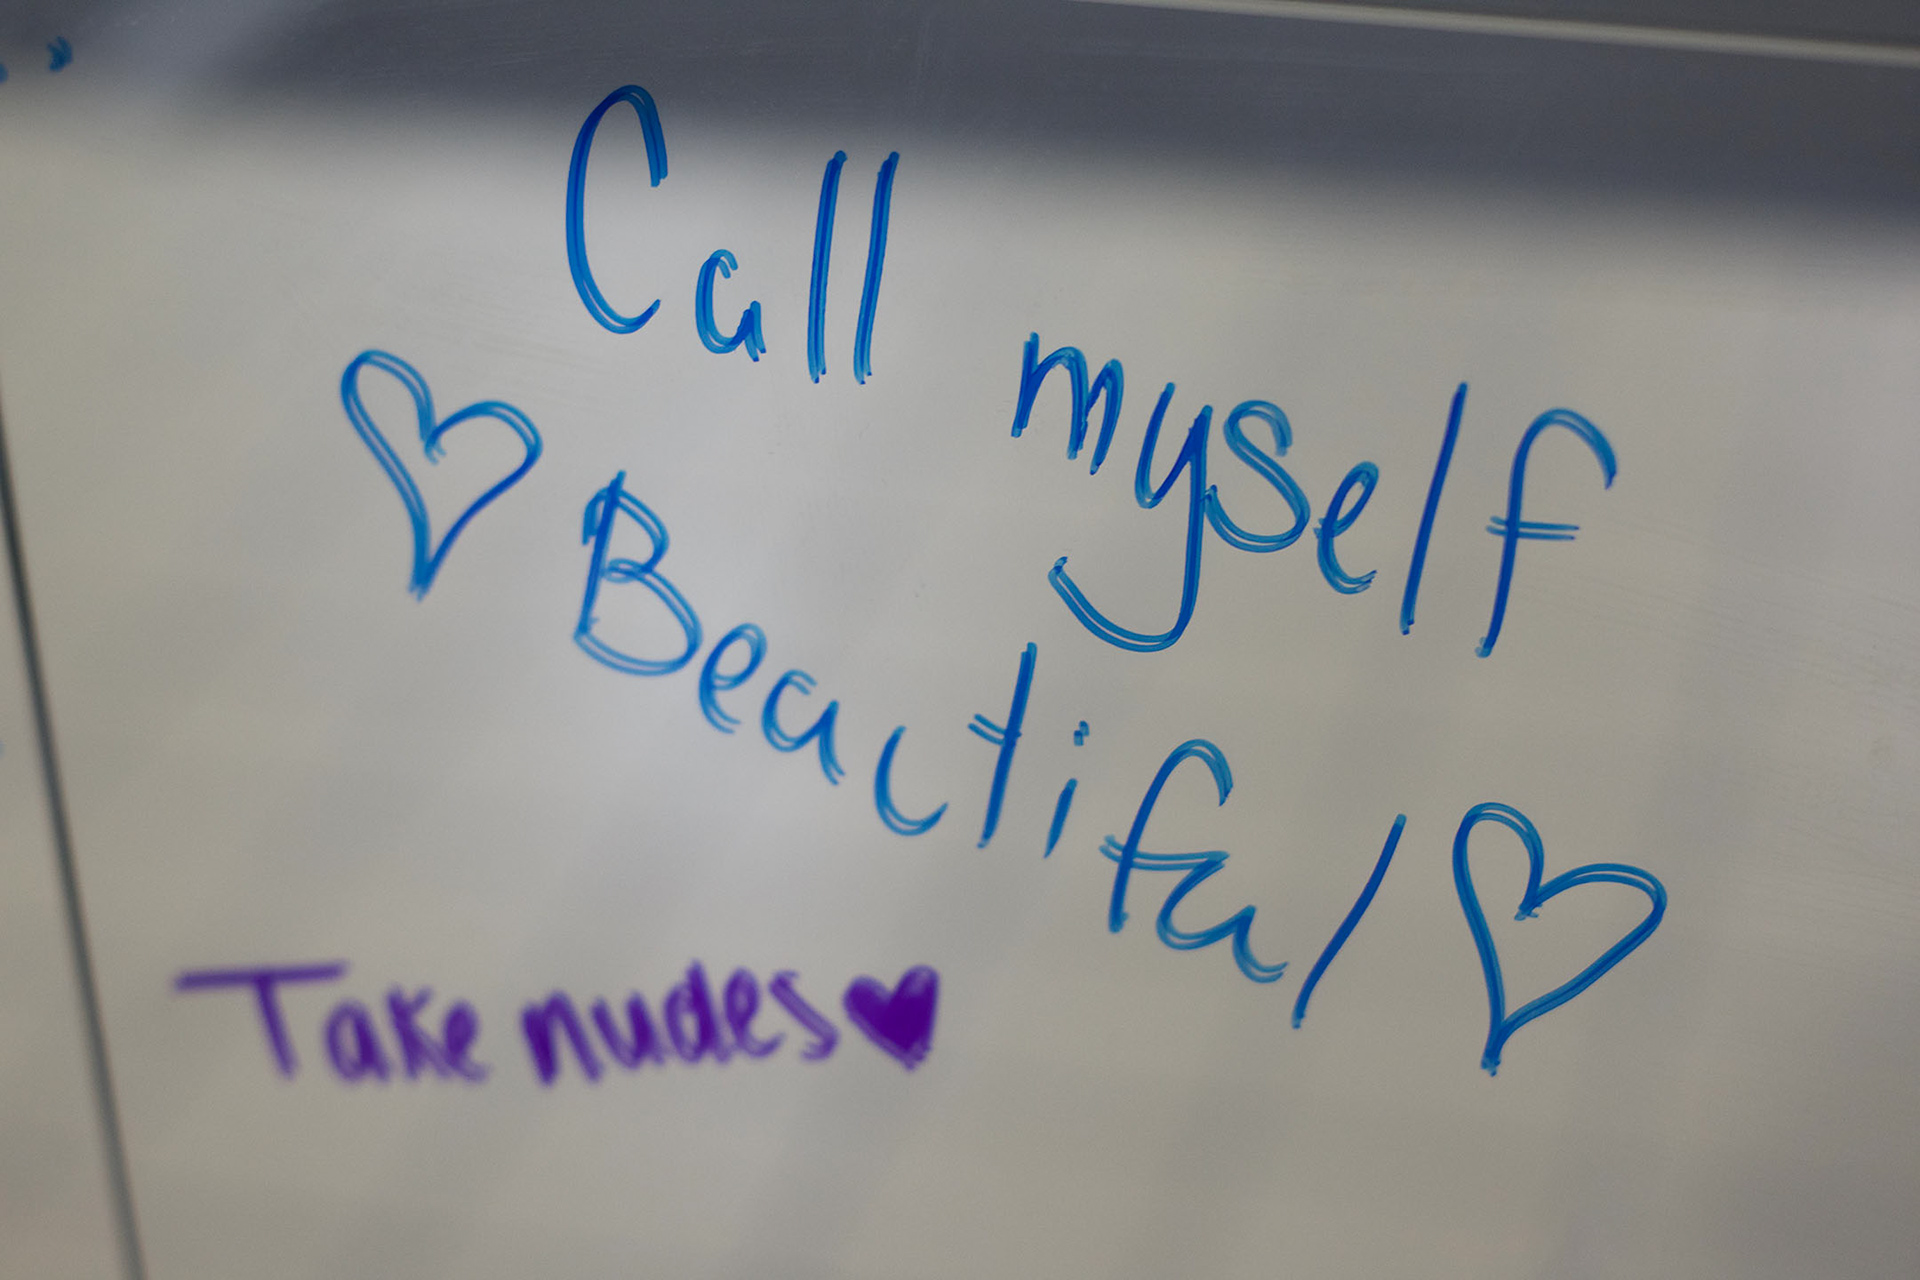 Call myself
♡ Beautiful ♡
Take nudes ♥